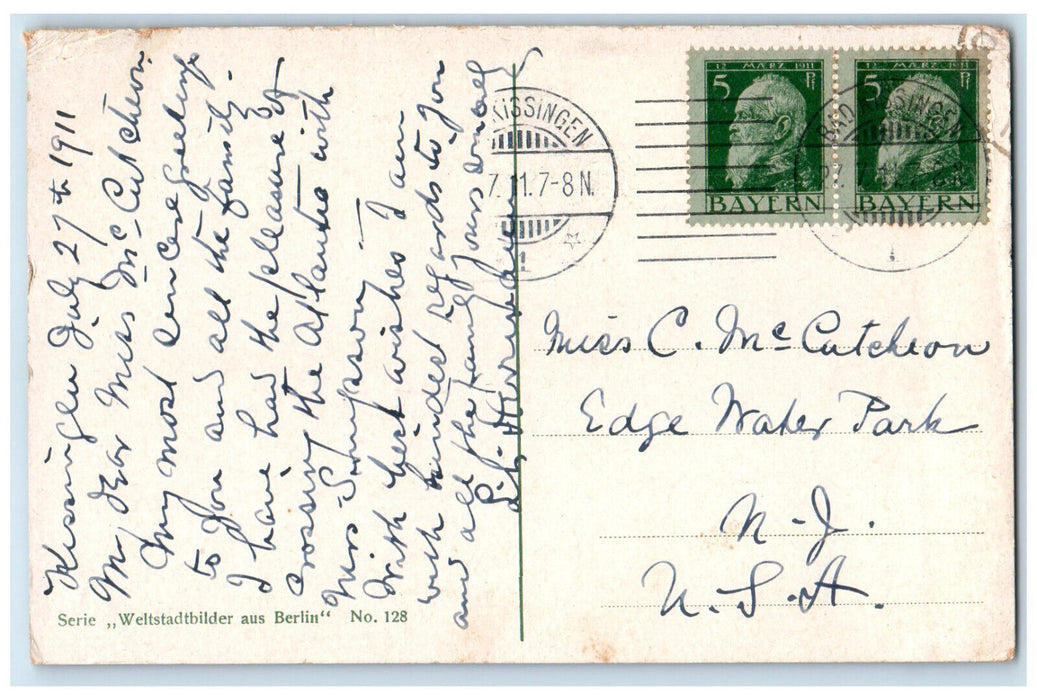 Kissingen July 27th 1911
My dear Miss Mc Cutcheon
My most sincere greetings
to You and all the family
I have had the pleasure of
crossing the Atlantic with
Miss
With best wishes I am
with kindest regards to You
and all the family Yours sincerely
Serie „Weltstadtbilder aus Berlin“ No. 128
KISSINGEN
7.11.7-8 N.
1
12 MÆRZ 1911
5 Pf
BAYERN
12 MÆRZ 1911
5 Pf
BAYERN
BAD KISSINGEN
1
Miss C. Mc Cutcheon
Edge Water Park
N. J.
U. S. A.